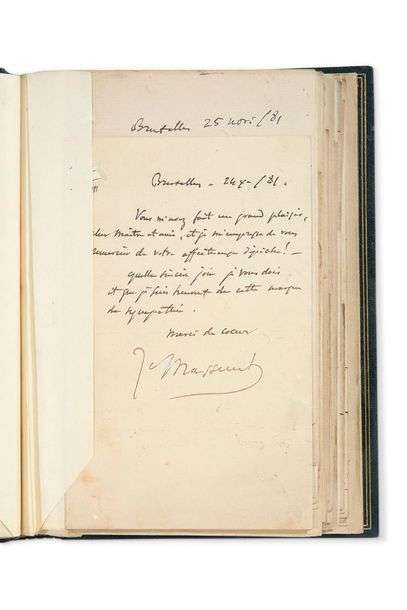 Bruxelles 25 nov /81
Bruxelles - 24 /81.
Vous m'avez fait un grand plaisir,
cher maître et ami, et je m'empresse de vous
remercier de votre affectueuse dépêche ! —
quelle sincère joie je vous dois
et que je suis heureux de cette marque
de sympathie.
Merci de coeur
J. Massenet